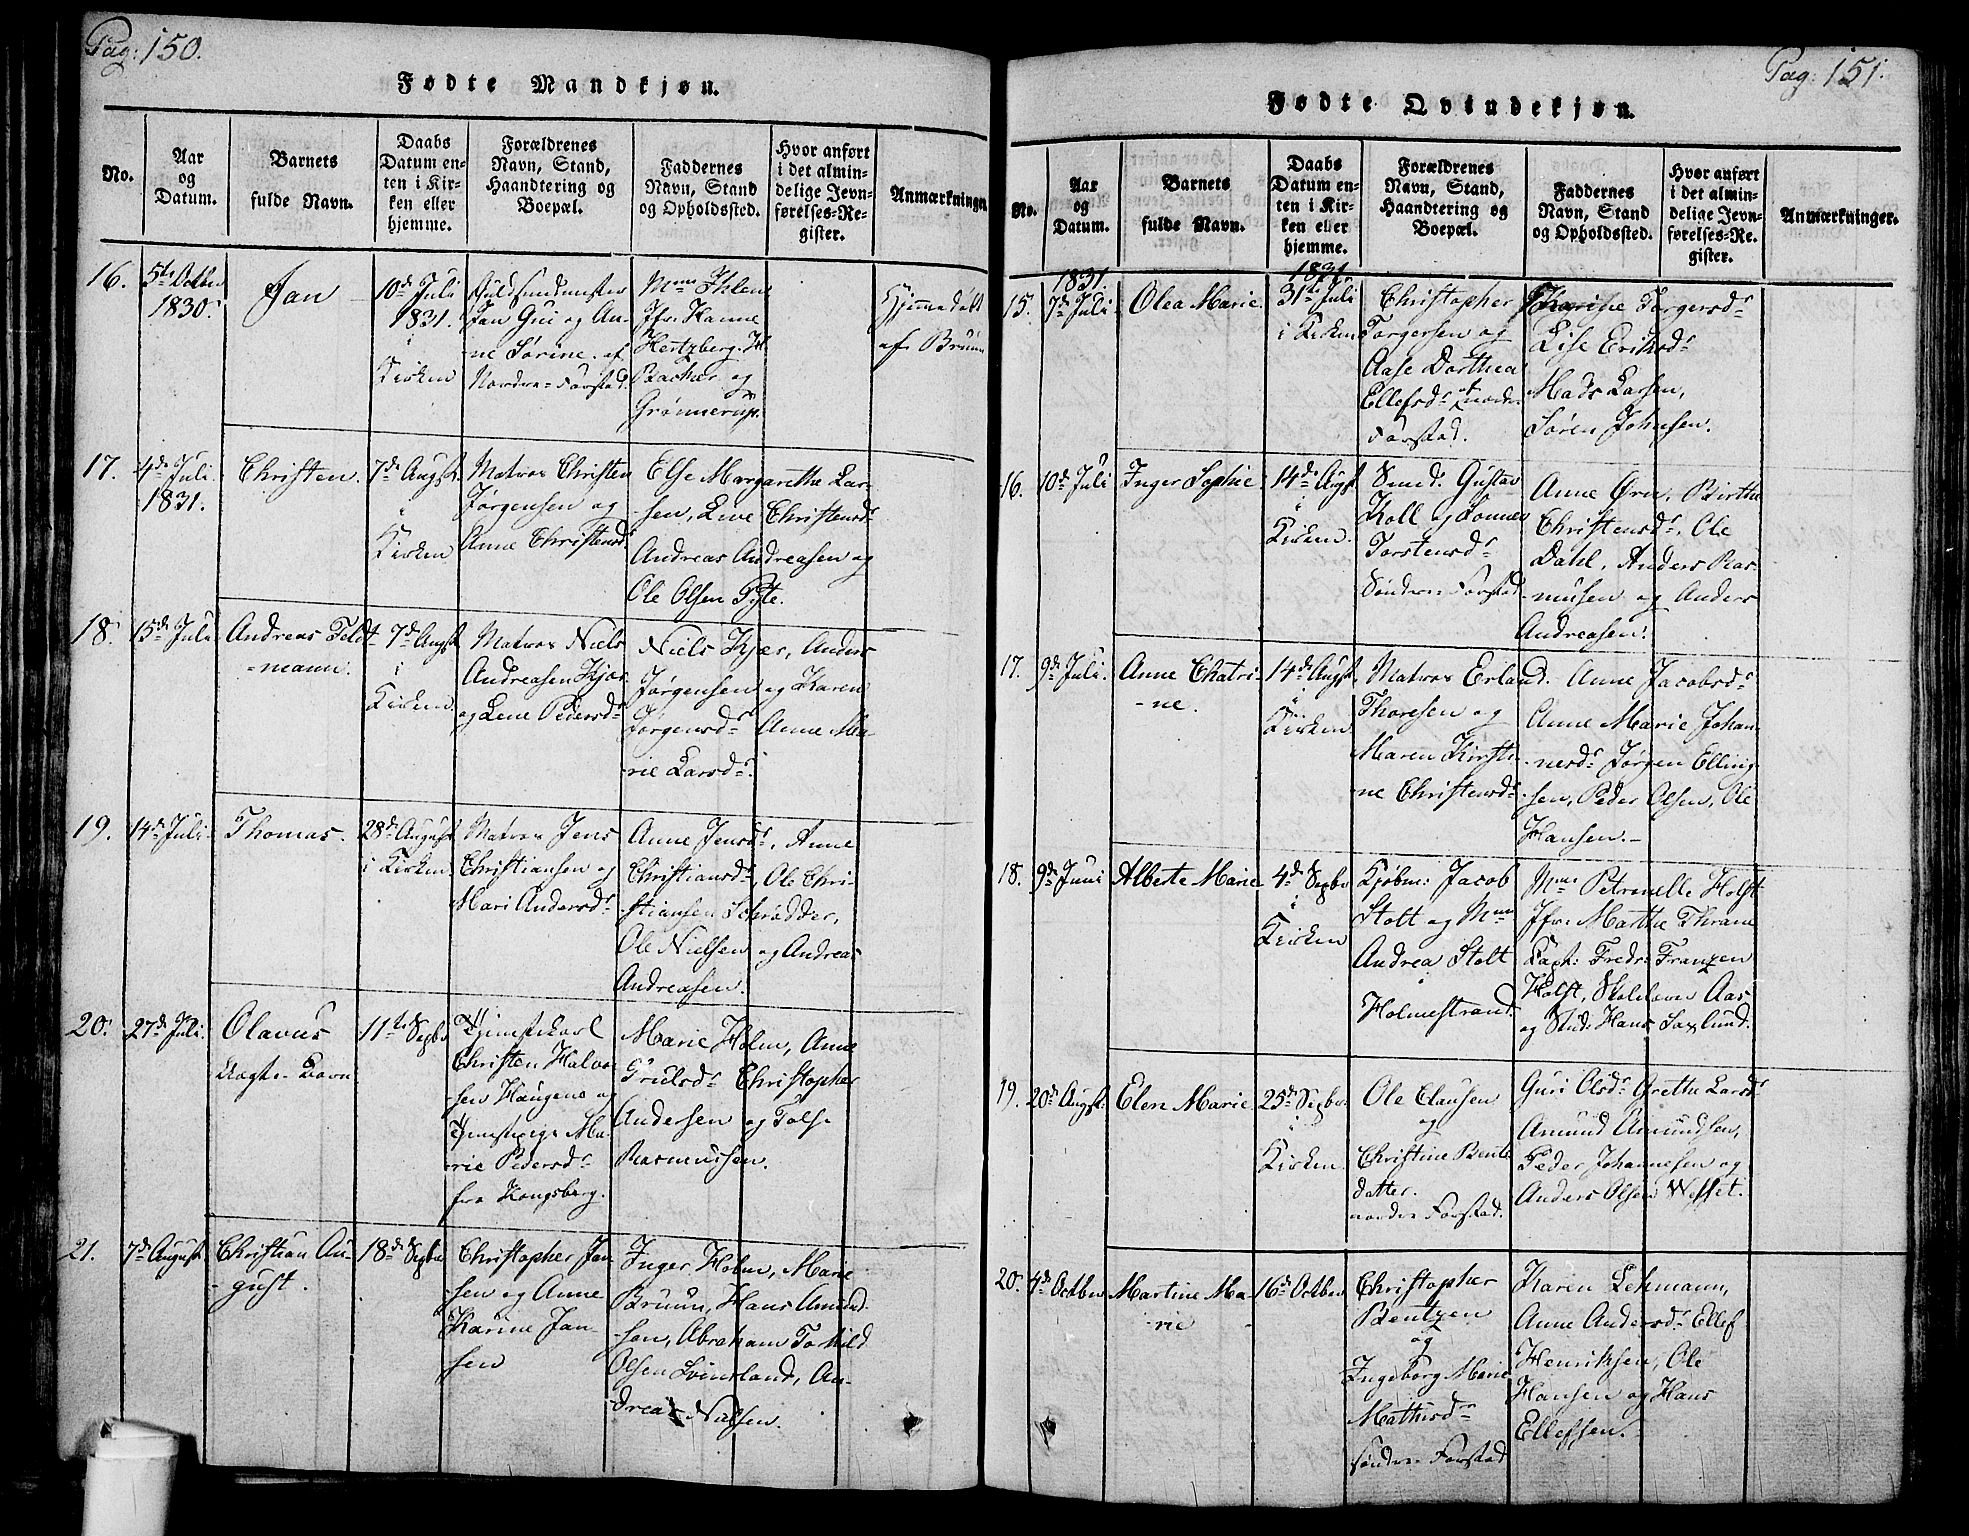 Pag: 150.
Fødte Mandkjøn.
No.
Aar
og
Datum.
Barnets
fulde Navn.
Daabs
Datum en-
ten i Kir-
ken eller
hjemme.
Forældrenes
Navn, Stand,
Haandtering og
Boepæl.
Faddernes
Navn, Stand
og Opholdssted.
Hvor anført
i det almin-
delige Jevn-
førelses-Re-
gister.
Anmærkninger
16.
5te Octber
1830.
Jan
10de Juli
1831.
i
Kirken
Jan Gui og An-
ne Sørine. af
Nordre Forstad.
Mme Ihlen
Jfr. Hanne
Hertzberg. H.
Backer og
Grønnerup.
Hjemmedøbt
af Bruun
17.
4de Juli
1831.
Christen.
7de Augst.
i
Kirken
Matros Christen
Jørgensen og
Anne Christensdr
Else Margarethe Lar-
sen, Live Christensdr
Andreas Andreasen og
Ole Olsen Pyte.
18.
15de Juli
Andreas Feldt-
-mann.
7de Augst
i
Kirken.
Matros Niels
Andreasen Kjær
og Lene Pedersdr
Niels Kjær, Anders
Jørgensen og Karen
Jørgensdr Anne Ma-
rie Larsdr.
19.
14de Juli.
Thomas.
28de August
i Kirken.
Matros Jens
Christiansen og
Mari Andersdr
Anne Jensdr, Anne
Christiansdr, Ole Chri-
stiansen Schrødder,
Ole Nielsen og Andreas
Andreasen.
20.
27de Juli.
Olavus
Uægte Barn
11te Septbr
Tjenestekarl
Christen Halvor
sen Haugene og
Tjenestepige Ma-
rie Pedersdr
fra Kongsberg.
Marie Holm, Anne
Truelsdr Christopher
Andersen og
Rasmussen.
21.
7de August
Christian Au-
-gust.
18de Septbr
Christopher Jan-
sen og Anne
Karine Jan-
sen
Inger Holm, Marie
Bruun, Hans Amund-
sen, Abraham
Olsen Svinsland, An-
dreas Nielsen.
Pag: 151.
Fødte Qvindekjøn.
No.
Aar
og
Datum.
Barnets
fulde Navn.
Daabs
Datum en-
ten i Kir-
ken eller
hjemme.
Forældrenes
Navn, Stand,
Haandtering og
Boepæl.
Faddernes
Navn, Stand
og Opholdssted.
Hvor anført
i det almin-
delige Jevn-
førelses-Re-
gister.
Anmærkninger.
15.
1831.
7de Juli
Olea Marie.
1831.
31te Juli
i Kirken
Christopher
Torgersen og
Aase Dorthea
Ellefsdr af nordre
Forstad.
Karine Torgersdr
Lise Eriksdr
Mads Larsen,
Søren Johnsen.
16.
10de Juli
Inger Sophie.
14de Augst
i
Kirken.
Smed. Gustav
Koll og
Torstensdr
Søndre Forstad
Anne Ørn, Birthe
Christensdr, Ole
Dahl, Anders Ras-
-musen og Anders
Andreasen.
17.
9de Juli.
Anne Chatri-
-ne.
14de Augst
i
Kirken
Matros Erland
Thoresen og
Maren Kirsti-
ne Christensdr
Anne Jacobsdr
Anne Marie Johan-
-nesdr Jørgen Elling-
sen, Peder Olsen, Ole
Hansen.-
18.
9de Juni
Alberte Marie
4de Septbr
i
Kirken
Kjøbm: Jacob
Stolt og Mme
Andrea Stolt
i
Holmestrand
Mme Petronelle Holst
Jfr. Marthe Thrane
Capt: Fredr: Franzen
Holst, Skolelærer Aas
og Stud: Hans Saxlund.
19.
20de Augst:
Elen Marie
25de Septbr.
i
Kirken.
Ole Clausen
og
Christine Bente
datter.
nordre Forstad.
Guri Olsdr Grethe Larsdr
Amund Amundsen,
Peder Johannesen og
Anders Olsen Wesset.
20.
4de Octber
Martine Ma-
-rie
16de Octber
Christopher
Bentzen
og
Ingeborg Marie
Mathisdr
søndre Forstad
Karen Lehmann,
Anne Andersdr Ellef
Henriksen, Ole
Hansen og Hans
Ellefsen.-